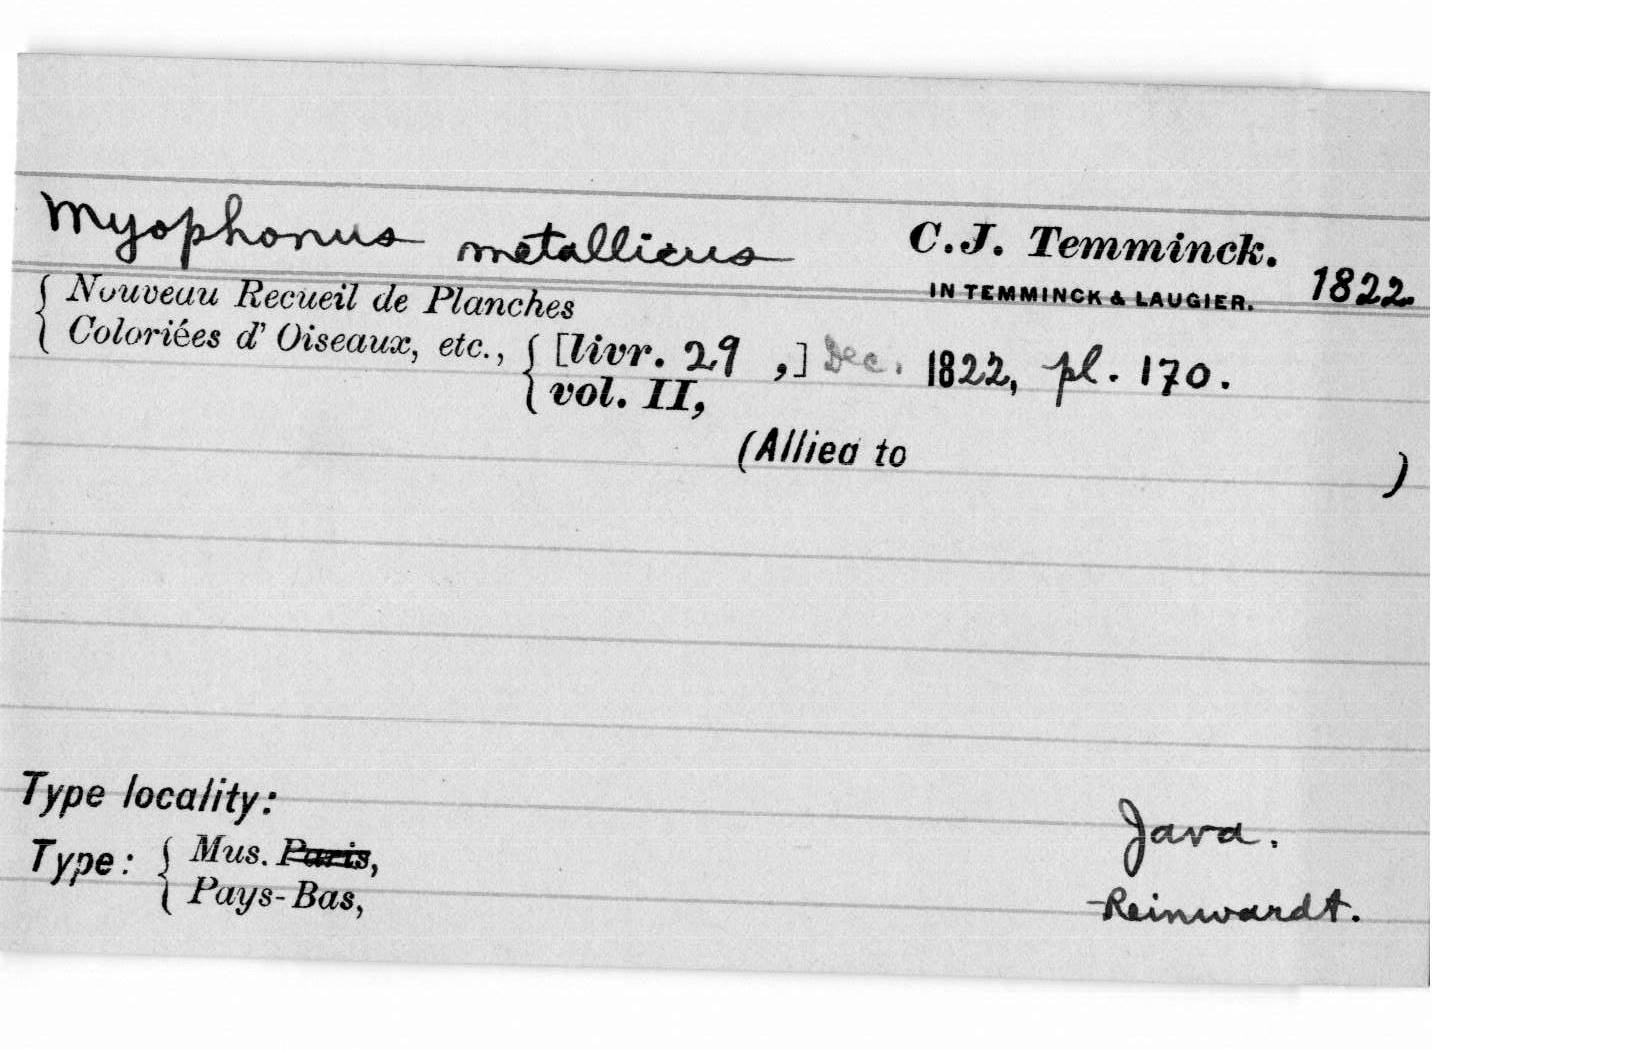 Myophonus metallicus C.J. Temminck.
IN TEMMINCK & LAUGIER. 1822.
{ Nouveau Recueil de Planches
Coloriées d' Oiseaux, etc., { [livr. 29 ,] Dec. 1822, pl. 170.
vol. II,
(Allied to )
Type locality: Java.
Type: { Mus. Paris,
Pays-Bas, Reinwardt.